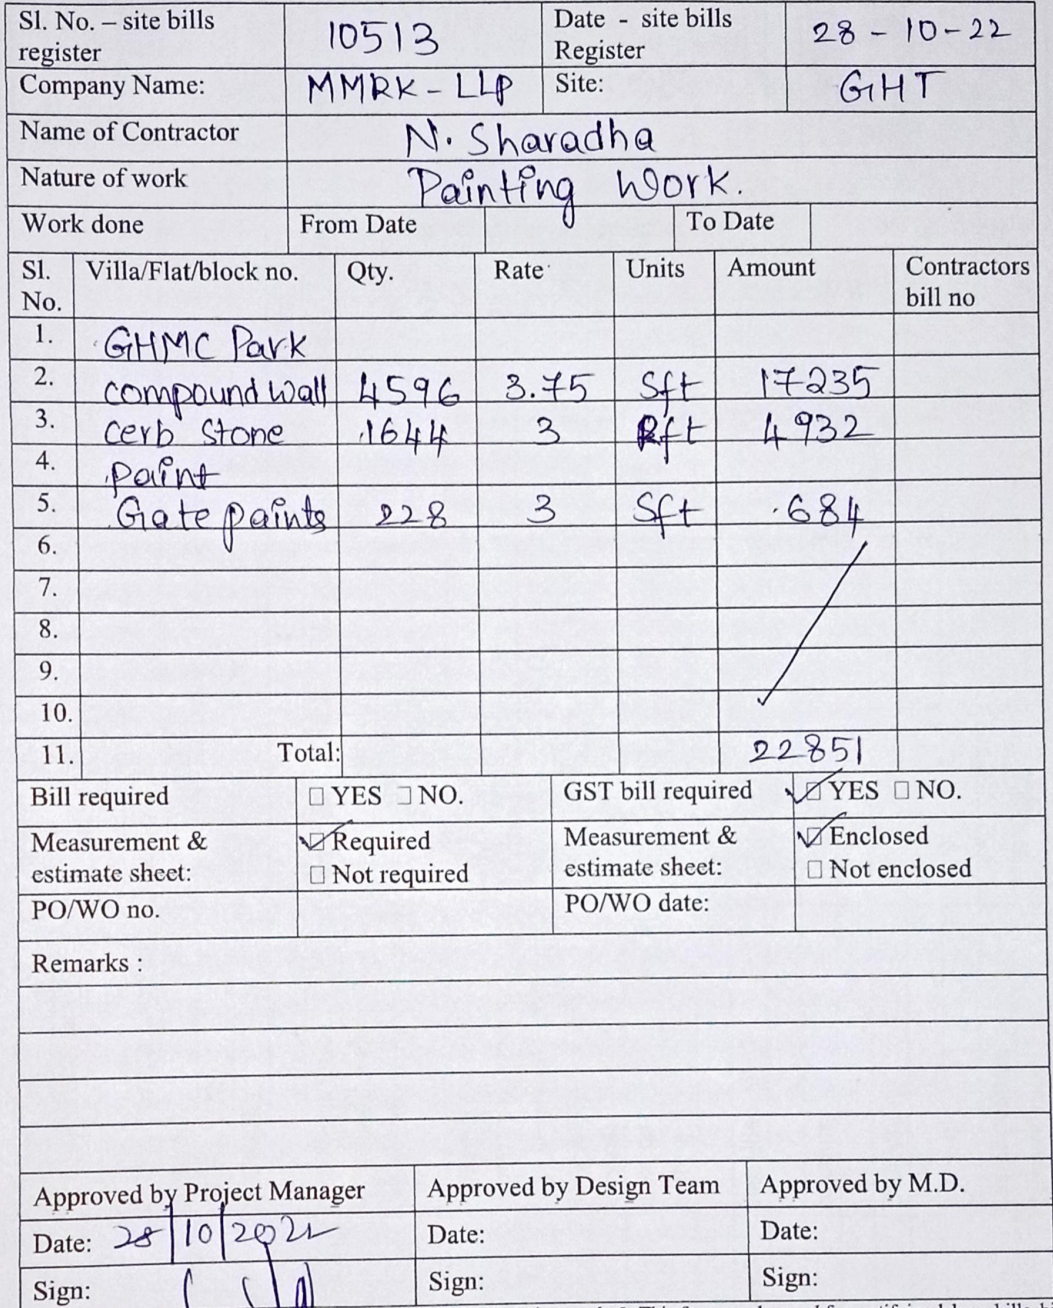 Sl. No. – site bills register 10513 Date - site bills Register 28-10-22
Company Name: MMRK-LLP Site: GHT
Name of Contractor N. Sharadha
Nature of work Painting Work.
Work done From Date To Date
Sl. No. Villa/Flat/block no. Qty. Rate Units Amount Contractors bill no
1. GHMC Park
2. compound wall 4596 3.75 Sft 17235
3. cerb stone 1644 3 Rft 4932
4. Paint
5. Gate paints 228 3 Sft 684
6.
7.
8.
9.
10.
11. Total: 22851
Bill required ☐ YES ☐ NO. GST bill required ☑ YES ☐ NO.
Measurement & estimate sheet: ☑ Required ☐ Not required Measurement & estimate sheet: ☑ Enclosed ☐ Not enclosed
PO/WO no. PO/WO date:
Remarks :
Approved by Project Manager Approved by Design Team Approved by M.D.
Date: 28/10/2022 Date: Date:
Sign: Sign: Sign: